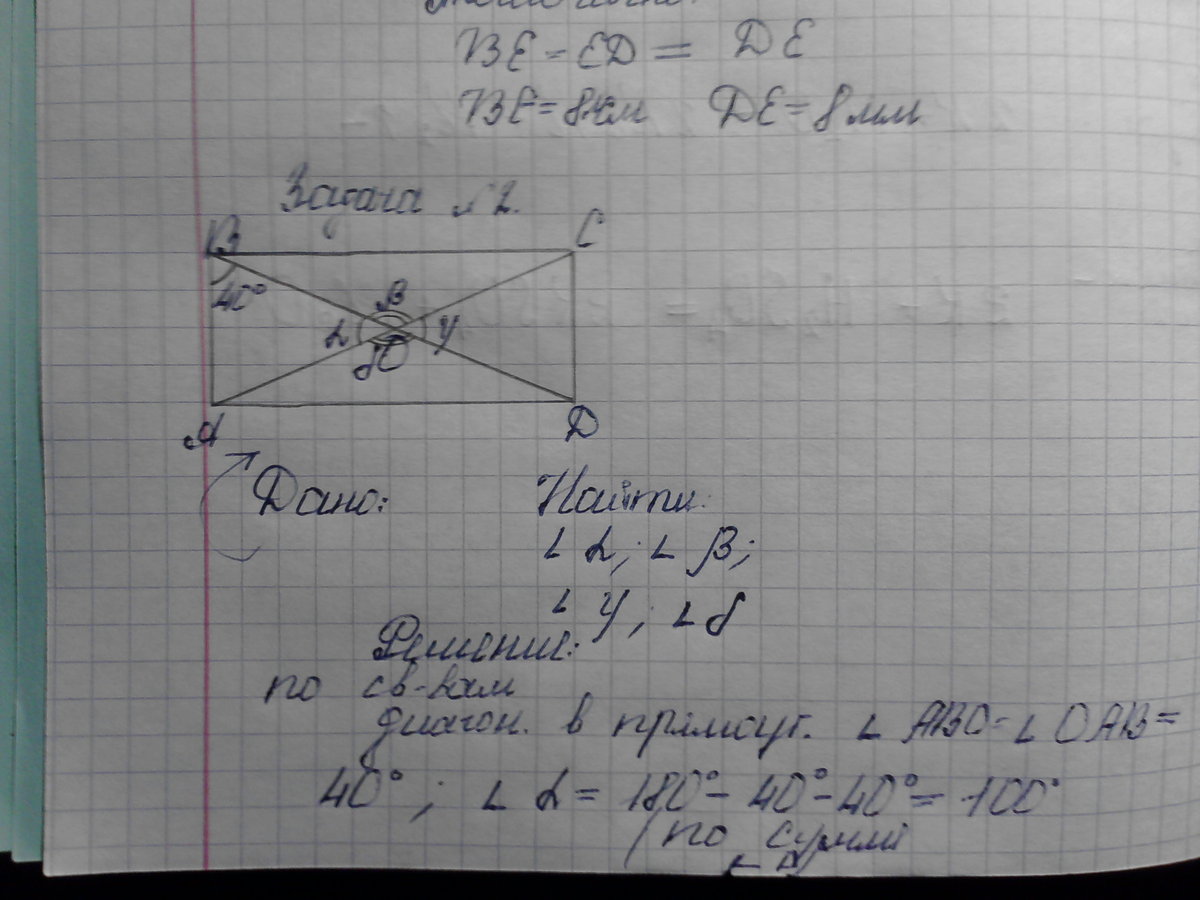 BE = ED = DE
BE = 8 км DE = 8 мм
Задача №2.
B C
40° β
α γ
δ O
A D
Дано: Найти:
∠ α; ∠ β;
∠ γ; ∠ δ
Решение:
по св-вам
диагон. в прямоуг. ∠ ABO = ∠ OAB =
40°; ∠ α = 180° - 40° - 40° = 100°
(по сумме
∠ Δ